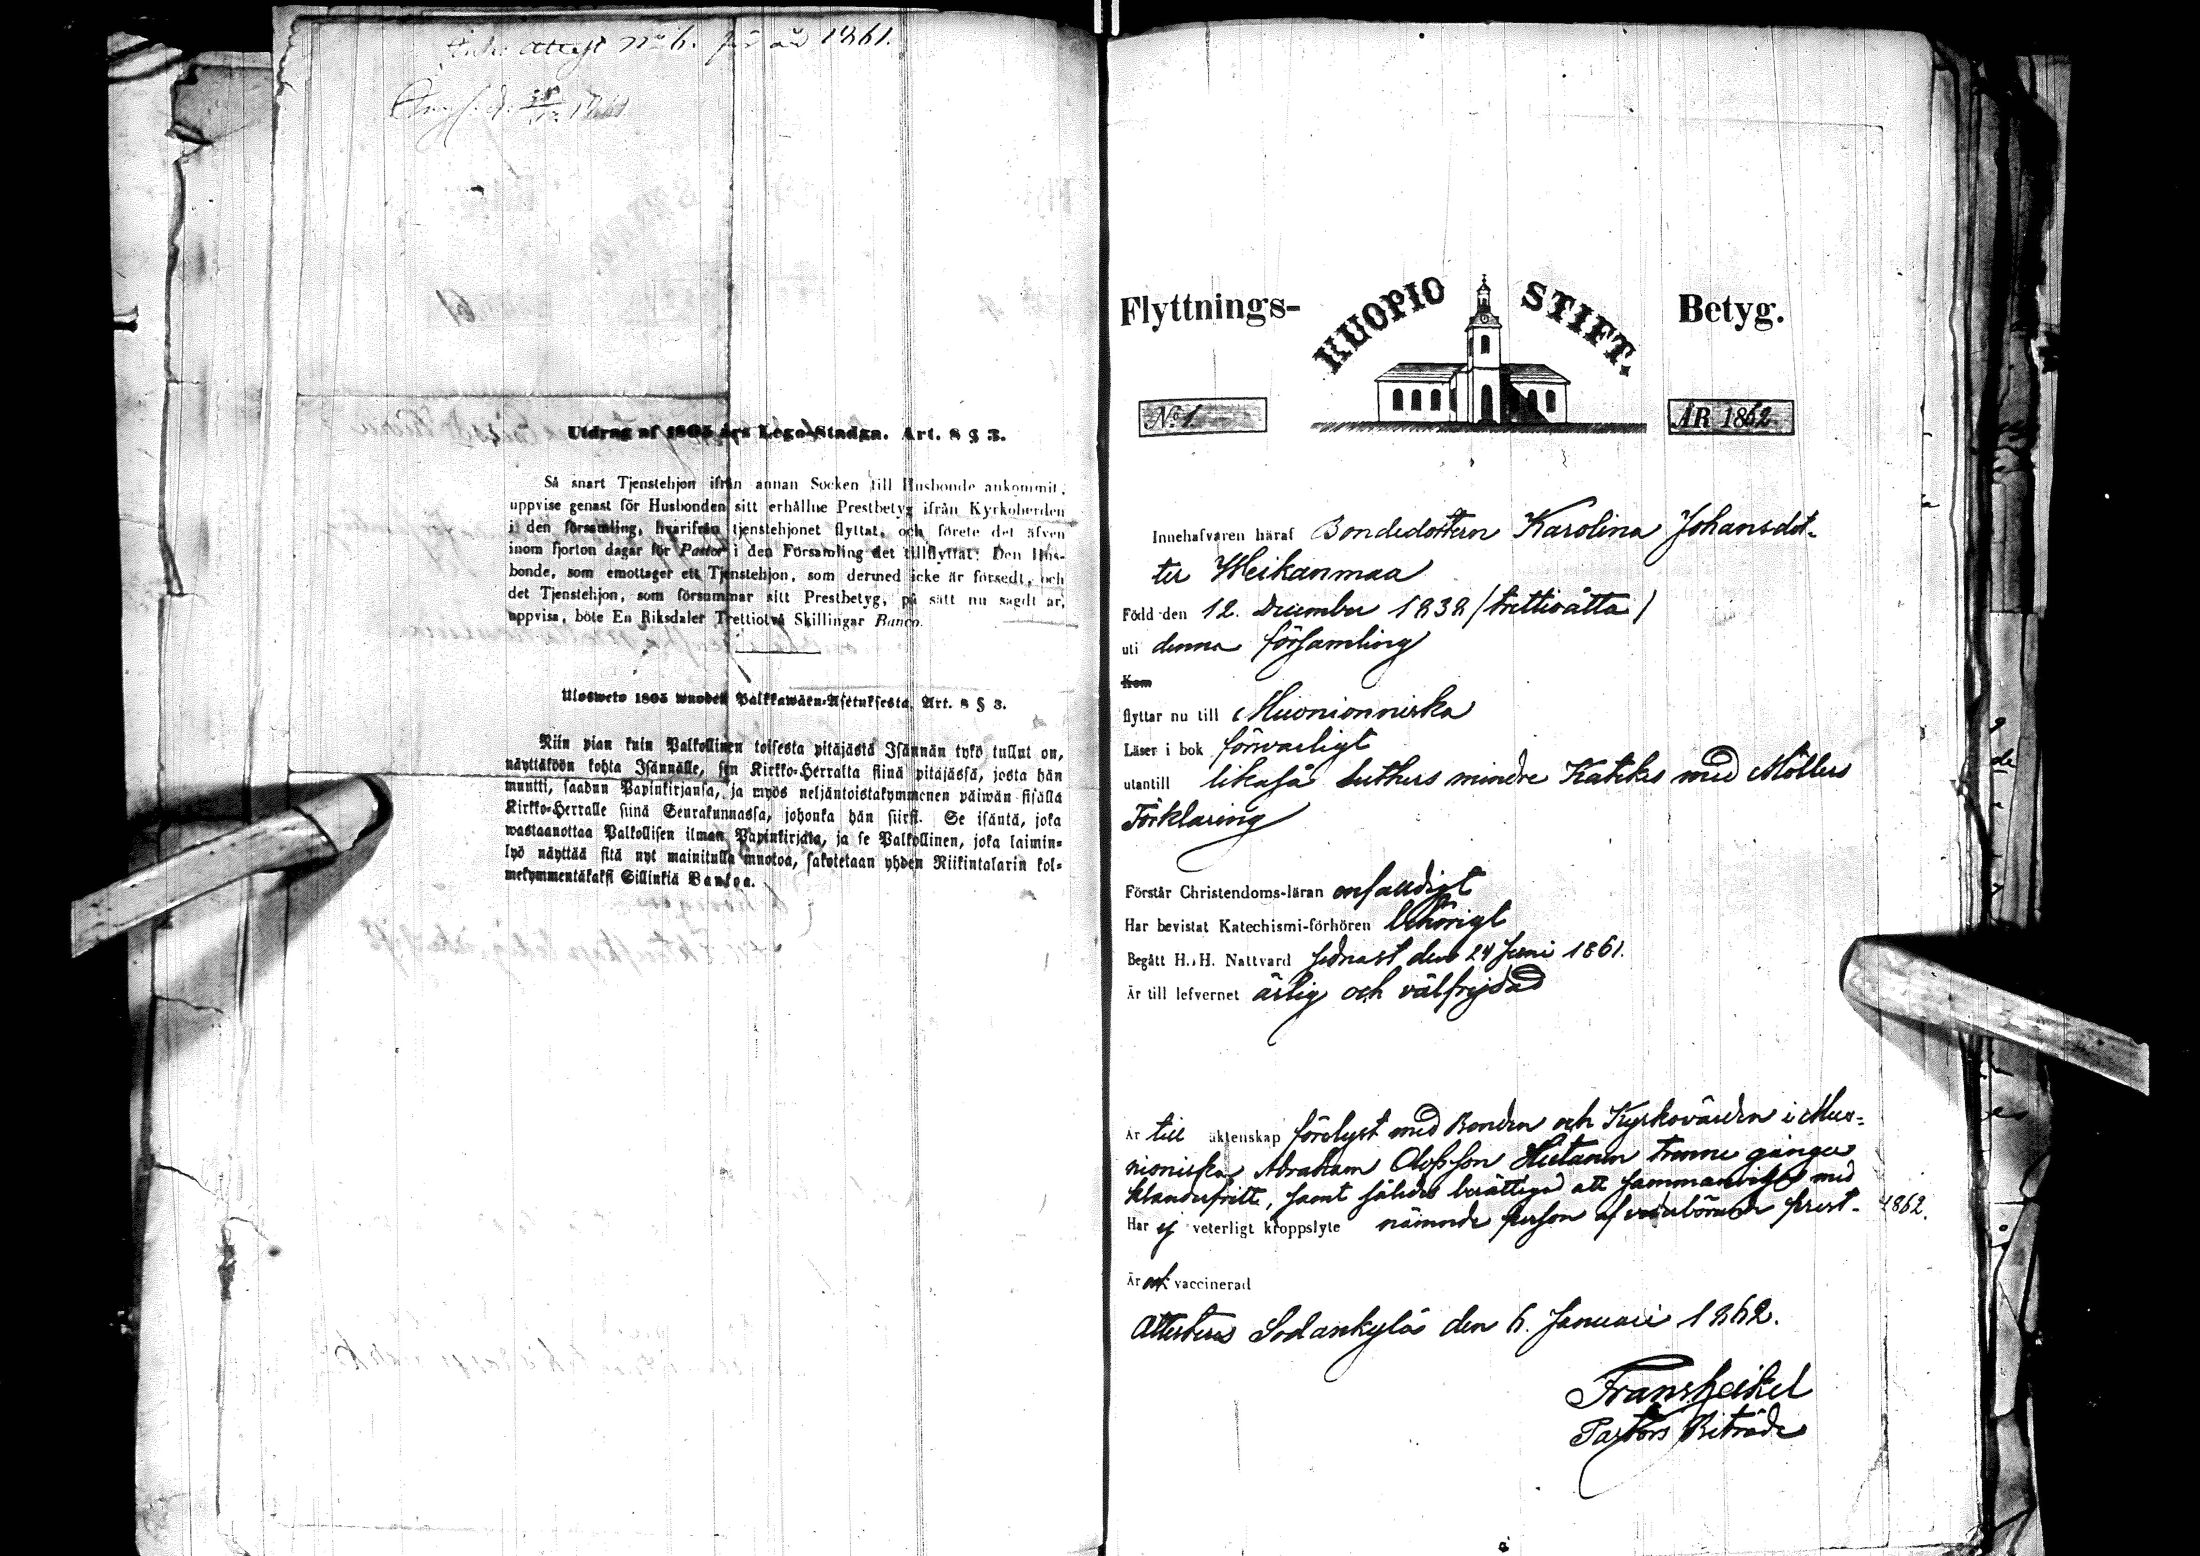 Attest No 6. 1861.
1861
Utdrag af 1805 års Lego-Stadga. Art. 8 § 3.
Så snart Tjenstehjon ifrån annan Socken till Husbonde ankommit,
uppvise genast för Husbonden sitt erhållne Prestbetyg ifrån Kyrkoherden
i den församling, hvarifrån tjenstehjonet flyttat, och förete det äfven
inom fjorton dagar för Pastor i den Församling det tillflyttat. Den Hus-
bonde, som emottager ett Tjenstehjon, som dermed icke är försedt, och
det Tjenstehjon, som försummar sitt Prestbetyg, på sätt nu sagdt är,
uppvisa, böte En Riksdaler Trettiotvå Skillingar Banco.
Ulosweto 1805 wuoden Palkkawäen-Asetuksesta, Art. 8 § 3.
Niin pian kuin Palkollinen toisesta pitäjästä Isännän tykö tullut on,
näyttäköön kohta Isännälle, sen Kirkko-Herralta siinä pitäjässä, josta hän
muutti, saadun Papinkirjansa, ja myös neljäntoistakymmenen päiwän sisällä
Kirkko-Herralle siinä Seurakunnassa, johonka hän siirsi. Se isäntä, joka
wastaanottaa Palkollisen ilman Papinkirjata, ja se Palkollinen, joka laimin-
lyö näyttää sitä nyt mainitulla muotoa, sakotetaan yhden Riikintalarin kol-
mekymmentäkaksi Sillinkiä Bankoa.
Flyttnings- KUOPIO STIFT. Betyg.
No 1 ÅR 1862
Innehafvaren häraf Bondedottern Karolina Johansdot-
ter Heikanmaa
Född den 12. December 1838 (trettioåtta)
uti denna församling
Kom
flyttar nu till Muonionniska
Läser i bok försvarligt
utantill likaså Luthers mindre Katekes med Möllers
Förklaring
Förstår Christendoms-läran enfaldigt
Har bevistat Katechismi-förhören behörigt
Begått H. H. Nattvard sednast den 24 Juni 1861.
Är till lefvernet ärlig och välfrejdad
Är till äktenskap förelyst med Bonden och Kyrkovärden i Muo-
nioniska, Abraham Olofsson Hietanen trenne gånger
klanderfritt, samt således berättigad att sammanvigas med
Har ej veterligt kroppslyte nämnde person af vederbörande prest. 1862.
Är ock vaccinerad
Attesteras Sodankylä den 6. Januari 1862.
Frans Heikel
Pastors Biträde